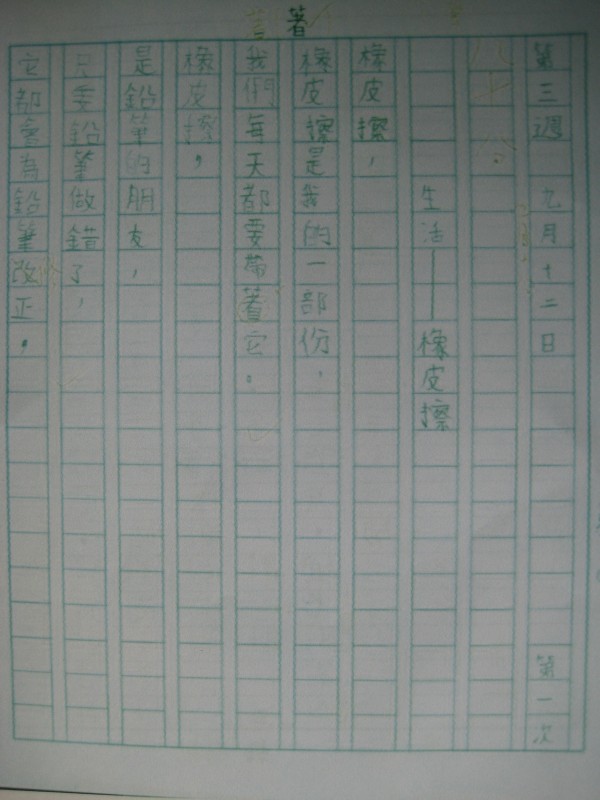 著
第三週 九月十二日 第一次
生活——橡皮擦
橡皮擦，
橡皮擦是我的一部份，
我們每天都要帶著它。
橡皮擦，
是鉛筆的朋友，
只要鉛筆做錯了，
它都會為鉛筆改正。